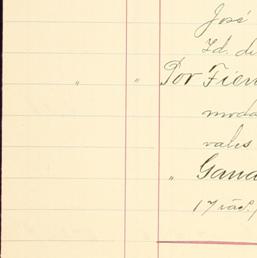 José
Id. de
" " Por Fien
moda
vales
" Gana
17 vác.